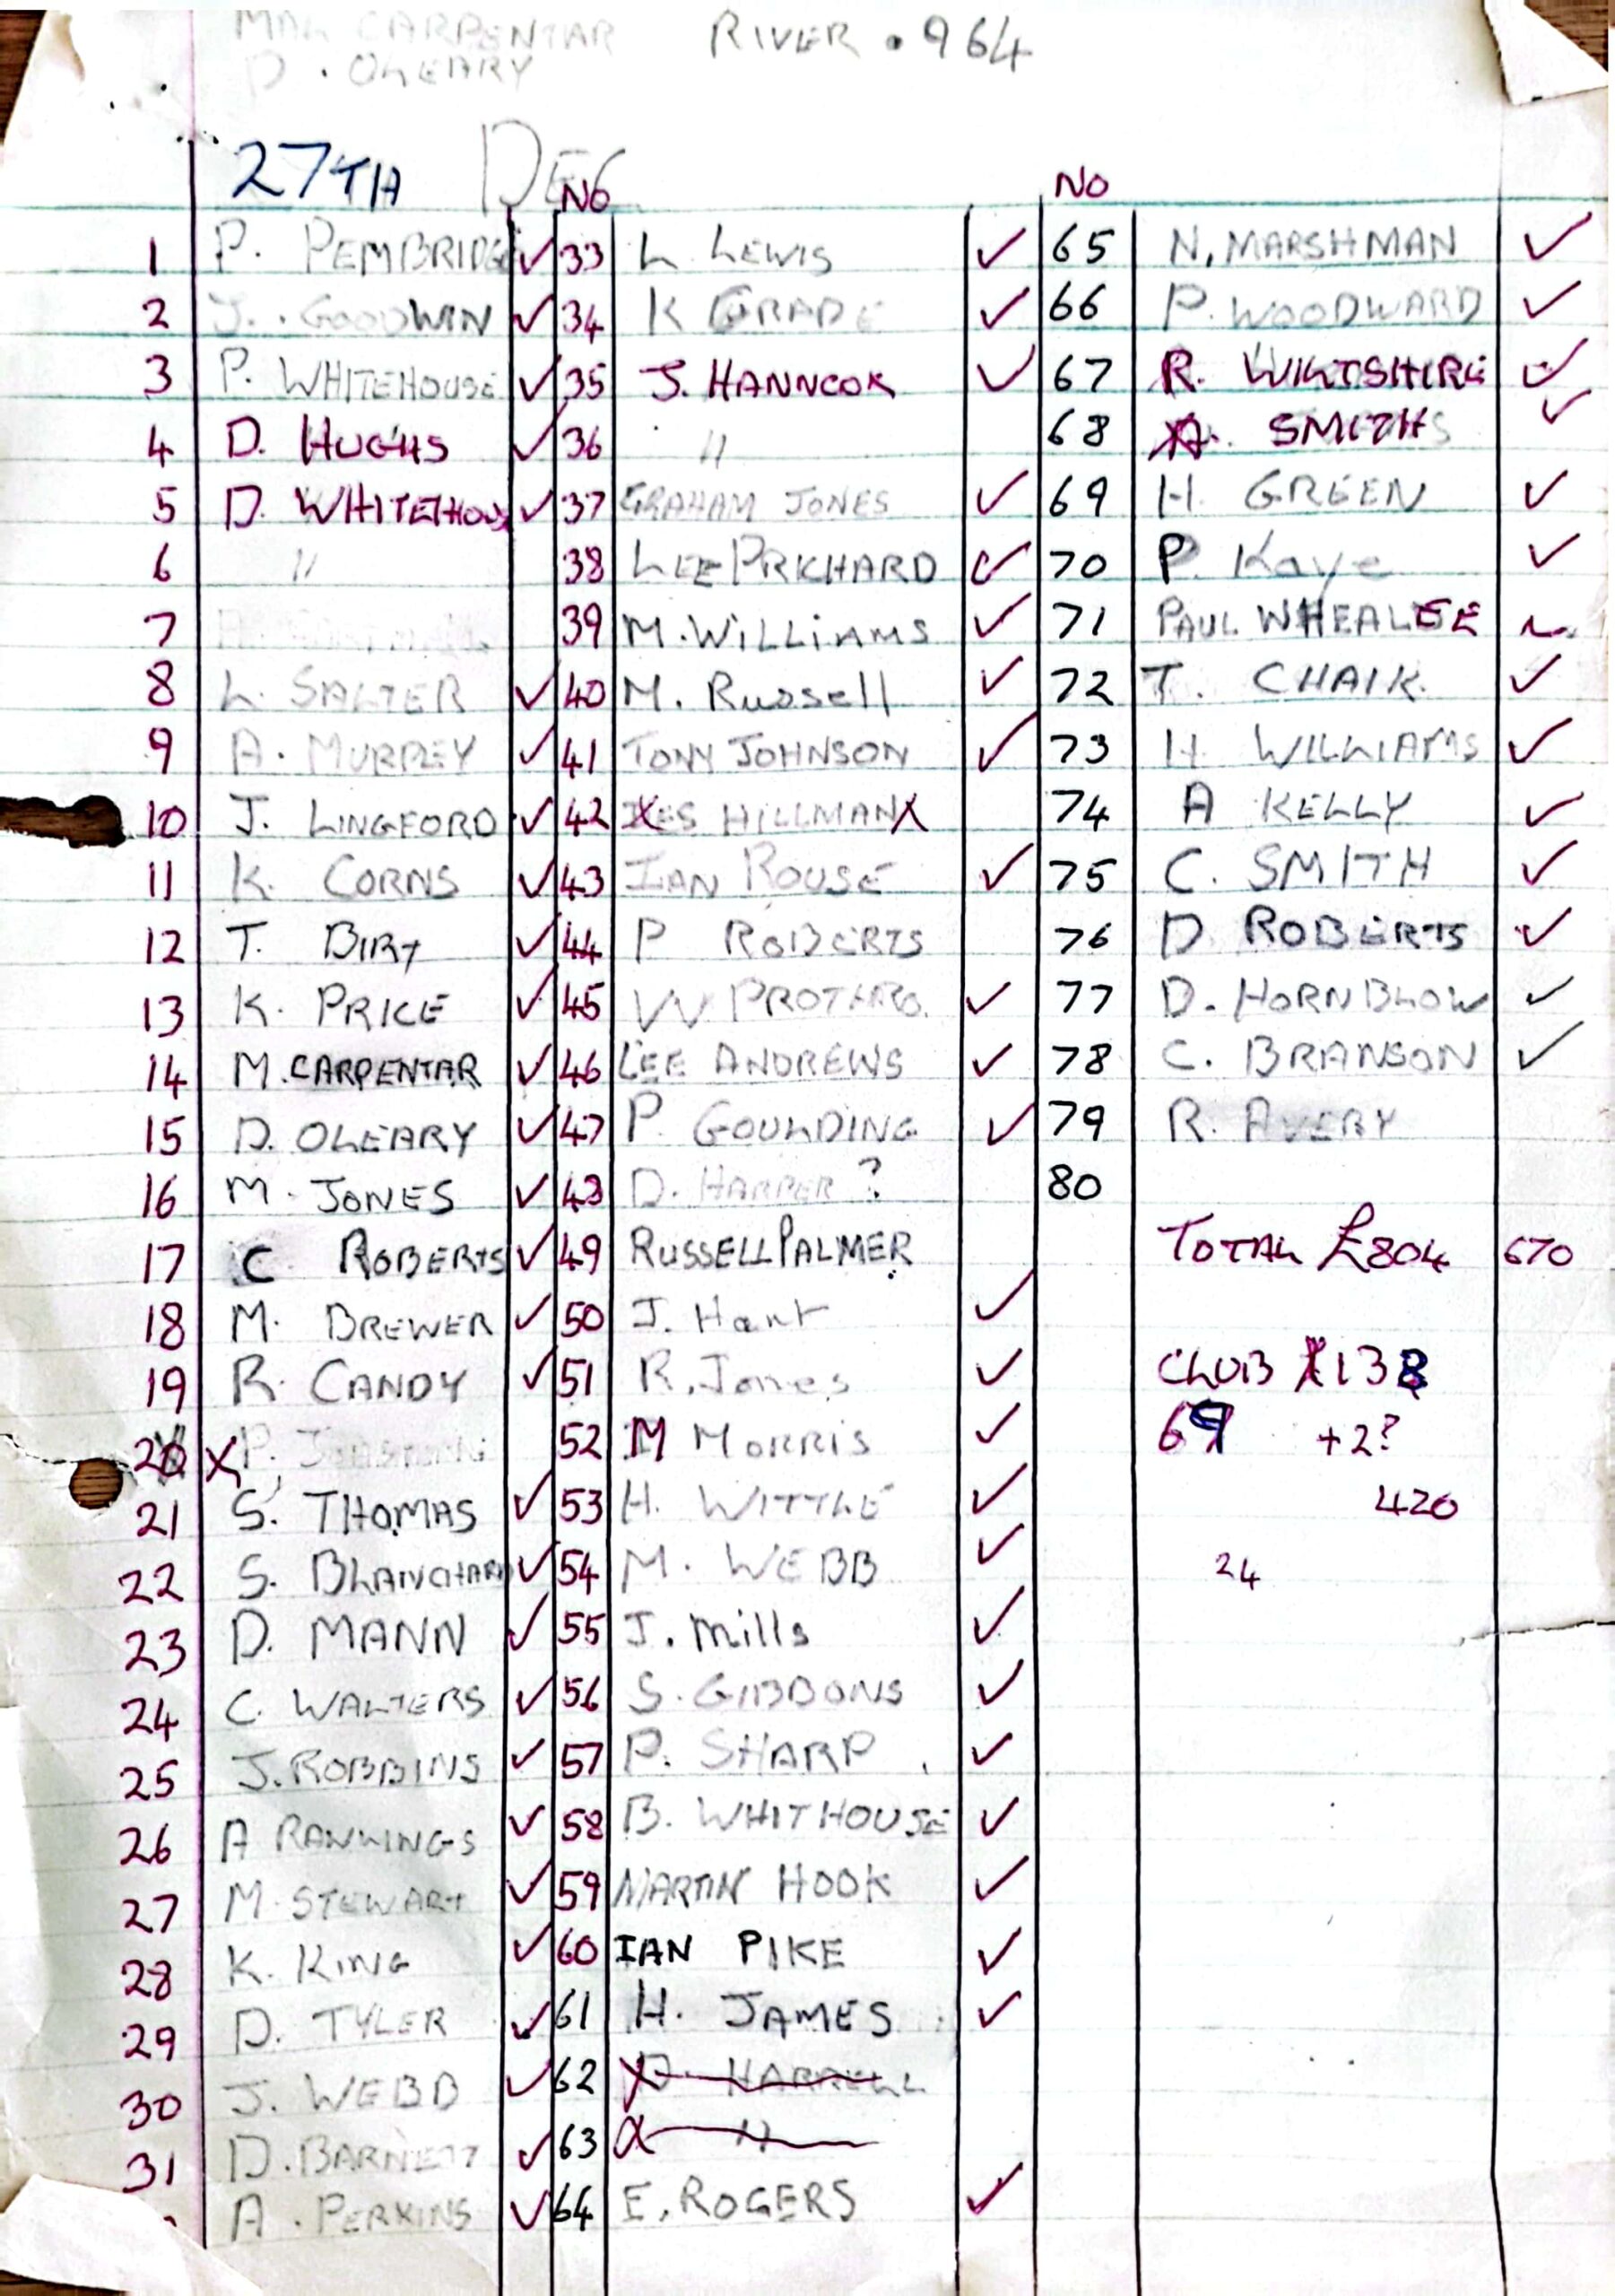 MAL CARPENTAR RIVER . 964
D. OLEARY
27TH DEC
NO NO
1 P. PEMBRIDGE ✓ 33 L LEWIS ✓ 65 N. MARSHMAN ✓
2 J. GOODWIN ✓ 34 K GRADE ✓ 66 P. WOODWARD ✓
3 P. WHITEHOUSE ✓ 35 J. HANNCOK ✓ 67 R. WILTSHIRE ✓
4 D. HUGHS ✓ 36 " 68 A. SMITH ✓
5 D. WHITEHOUS ✓ 37 GRAHAM JONES ✓ 69 H. GREEN ✓
6 " 38 LEE PRICHARD ✓ 70 P. Kaye ✓
7 39 M. WILLIAMS ✓ 71 PAUL WHEALEE
8 L. SALTER ✓ 40 M. Russell ✓ 72 T. CHALK ✓
9 A. MURREY ✓ 41 TONY JOHNSON ✓ 73 H. WILLIAMS ✓
10 J. LINGFORD ✓ 42 LES HILLMAN X 74 A KELLY ✓
11 K. CORNS ✓ 43 IAN ROUSE ✓ 75 C. SMITH ✓
12 T. BIRT ✓ 44 P ROBERTS 76 D ROBERTS ✓
13 K. PRICE ✓ 45 W PROTHRO. ✓ 77 D. HORNBLOW ✓
14 M. CARPENTAR ✓ 46 LEE ANDREWS ✓ 78 C. BRANSON ✓
15 D. OLEARY ✓ 47 P. GOULDING ✓ 79 R. AVERY
16 M. JONES ✓ 48 D. HARPER ? 80
17 C ROBERTS ✓ 49 RUSSELL PALMER TOTAL £804 670
18 M. BREWER ✓ 50 J. Hart ✓
19 R. CANDY ✓ 51 R. Jones ✓ CLUB 138
20 X P. 52 M MORRIS ✓ 69 +2?
21 S. THOMAS ✓ 53 H. WITTLE ✓ 420
22 S. BLANCHARD ✓ 54 M. WEBB ✓ 24
23 D. MANN ✓ 55 J. Mills ✓
24 C. WALTERS ✓ 56 S. GIBBONS ✓
25 J. ROBBINS ✓ 57 P. SHARP ✓
26 A RAWLINGS ✓ 58 B. WHITHOUSE ✓
27 M. STEWART ✓ 59 MARTIN HOOK ✓
28 K. KING ✓ 60 IAN PIKE ✓
29 D. TYLER ✓ 61 H. JAMES ✓
30 J. WEBB ✓ 62 D. HARRELL
31 D. BARNETT ✓ 63 "
A. PERKINS ✓ 64 E. ROGERS ✓